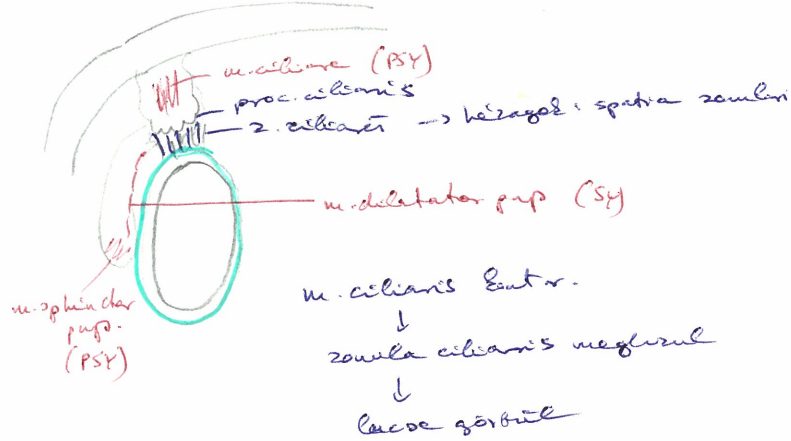 m. ciliare (PSY)
proc. ciliaris
z. ciliaris → hézagok: spatia zonularia
m. dilatator pup (SY)
m. sphincter
pup.
(PSY)
m. ciliaris kontr.
↓
zonula ciliaris meglazul
↓
lencse görbül